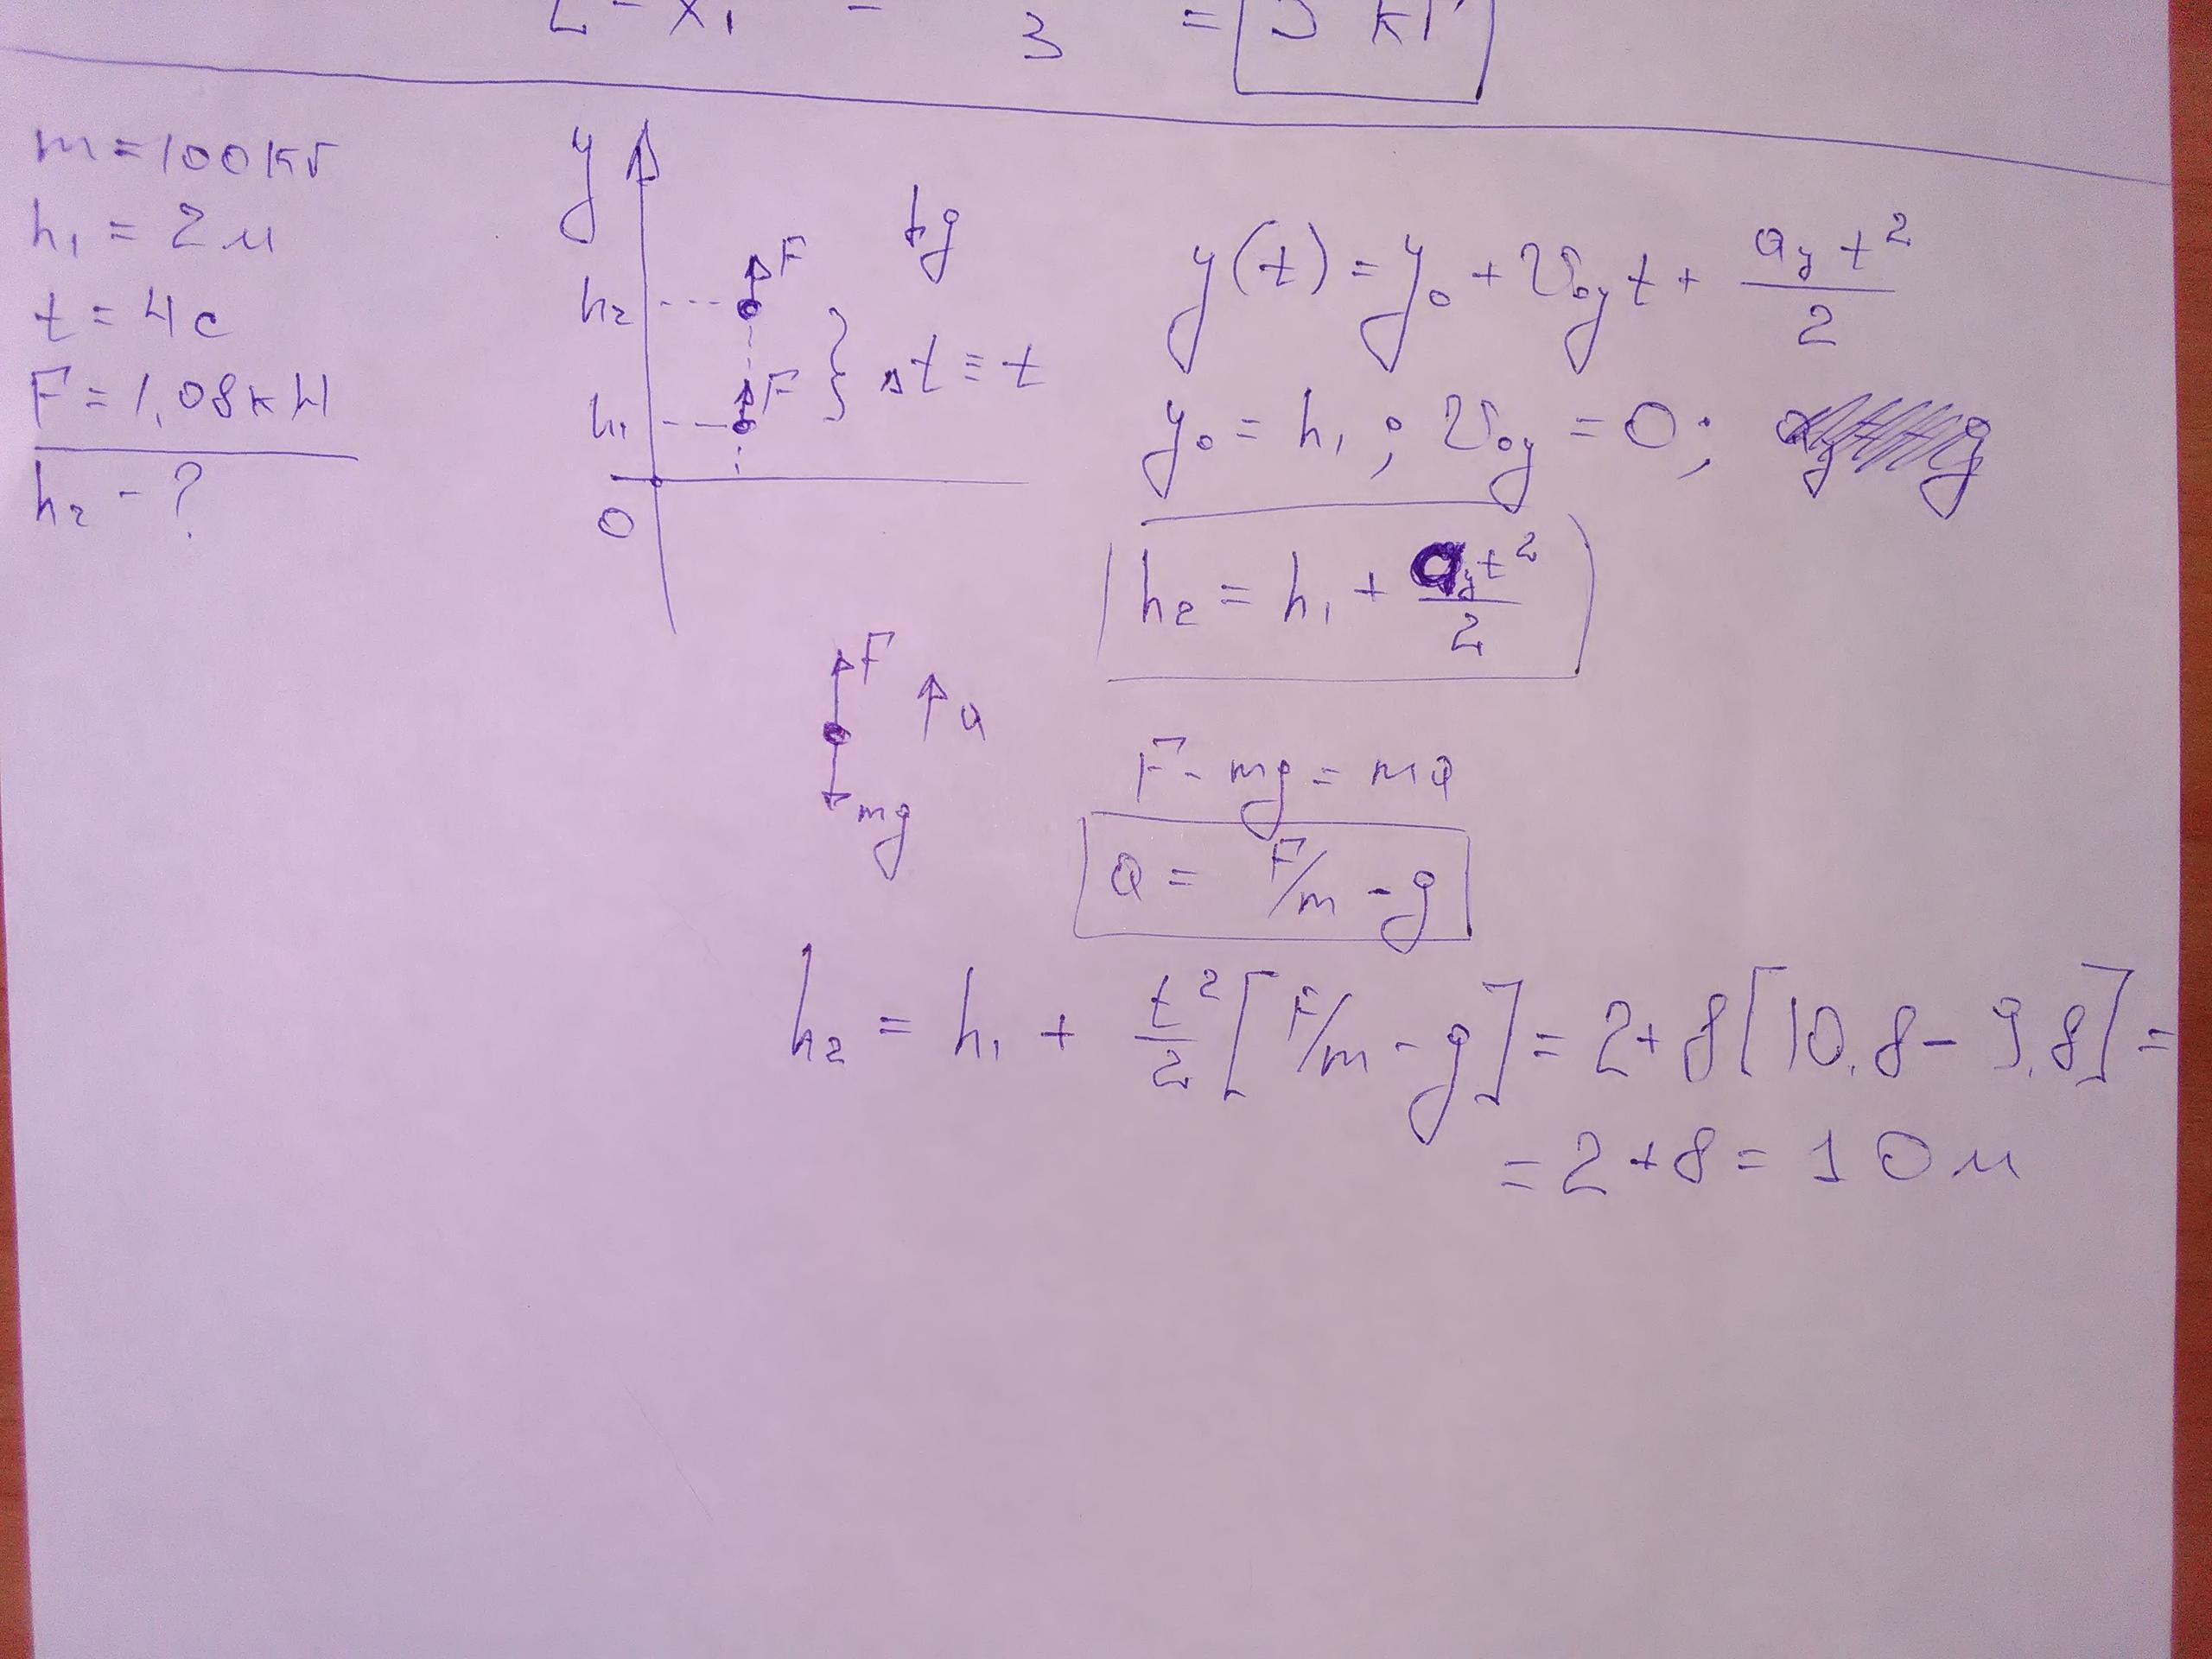 m = 100 кг
h₁ = 2 м
t = 4 c
F = 1,08 кН
h₂ - ?
y
g
F
h₂
F
h₁
Δt = t
0
y(t) = y₀ + v₀y t + ay t² / 2
y₀ = h₁ ; v₀y = 0 ;
h₂ = h₁ + ay t² / 2
F
a
mg
F - mg = ma
a = F/m - g
h₂ = h₁ + t²/2 [F/m - g] = 2 + 8 [10,8 - 9,8] =
= 2 + 8 = 10 м